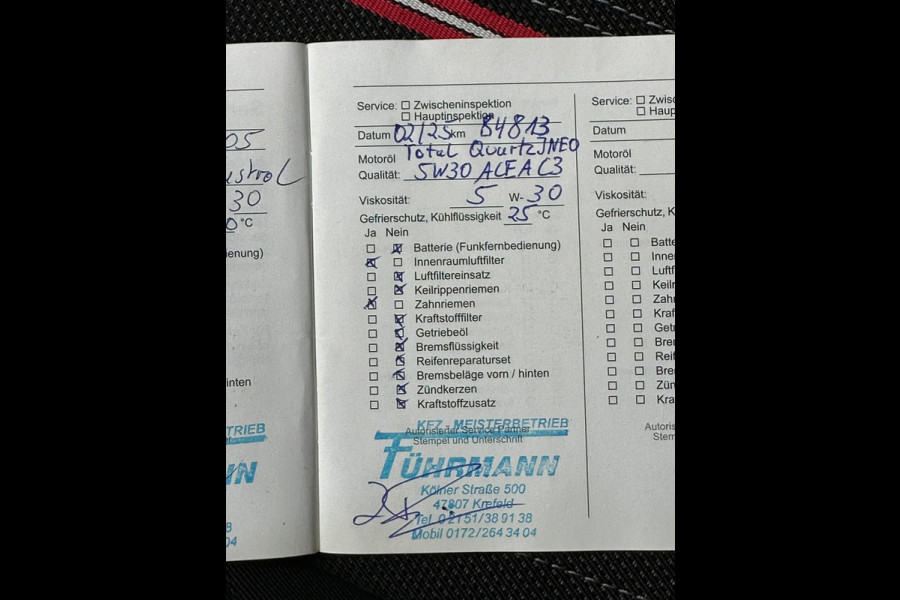 05
30
0°C
ienung)
inten
TRIEB
NN
8
04
Service: ☐ Zwischeninspektion
☐ Hauptinspektion
Datum 02/25 km 84813
Total Quartz INEO
Motoröl
Qualität: 5W30 ACEA C3
Viskosität: 5 W- 30
Gefrierschutz, Kühlflüssigkeit 25 °C
Ja Nein
☐ ☒ Batterie (Funkfernbedienung)
☒ ☐ Innenraumluftfilter
☐ ☒ Luftfiltereinsatz
☐ ☒ Keilrippenriemen
☒ ☐ Zahnriemen
☐ ☒ Kraftstofffilter
☐ ☒ Getriebeöl
☐ ☒ Bremsflüssigkeit
☐ ☒ Reifenreparaturset
☐ ☒ Bremsbeläge vorn / hinten
☐ ☒ Zündkerzen
☐ ☒ Kraftstoffzusatz
KFZ - MEISTERBETRIEB
Autorisierter Service Partner
Stempel und Unterschrift
FÜHRMANN
Kölner Straße 500
47807 Krefeld
Tel. 02151/38 91 38
Mobil 0172/264 34 04
Service: ☐ Zwisc
☐ Haup
Datum
Motoröl
Qualität:
Viskosität:
Gefrierschutz, K
Ja Nein
☐ ☐ Batte
☐ ☐ Inne
☐ ☐ Luftf
☐ ☐ Keilr
☐ ☐ Zahn
☐ ☐ Kraf
☐ ☐ Getr
☐ ☐ Bre
☐ ☐ Reif
☐ ☐ Bre
☐ ☐ Zün
☐ ☐ Kra
Autoris
Stem